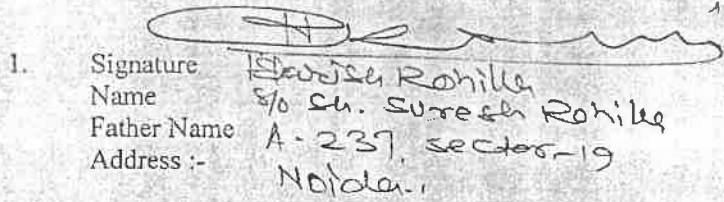 1. Signature
Name Harish Rohilla
Father Name S/o Sh. Suresh Rohilla
Address :- A-237, sector-19
Noida.